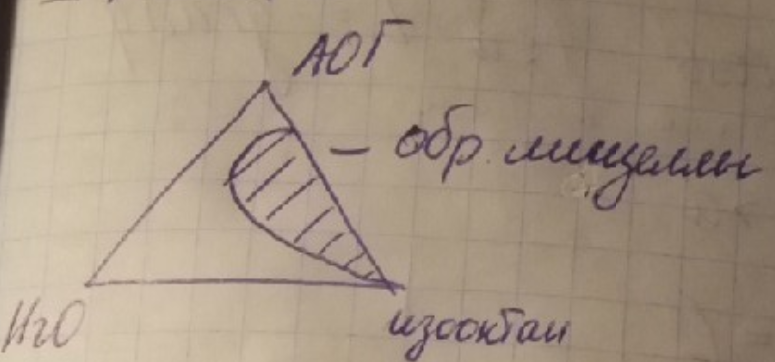 АОГ
— обр. мицеллы
H2O
изооктан